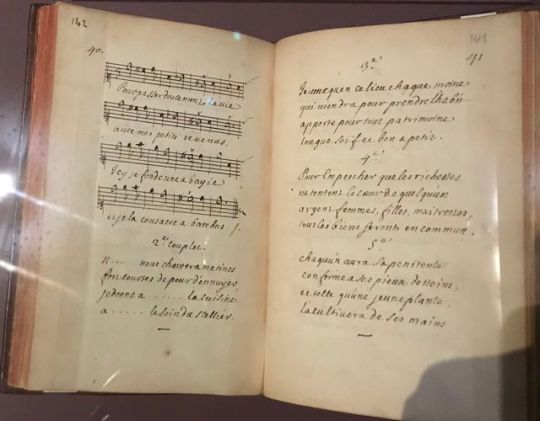 142
40.
Pour passer doucement la vie
avec mes petits revenus,
Icy je fonde une abayie
et je la consacre a bacchus ./.
2e. Couplet:
n.... nous chantera matines
fort courtes de peur d'ennuyer,
je donne a ..... la cuisine
a ..... le soin du cellier.
143
41
3e
Je veux qu'en ce lieu chaque moine
qui viendra pour prendre l'habit
apporte pour tout patrimoine
longue soif et bon apetit.
4e
Pour Empescher que les richesses
ne tentent le coeur de quelqu'un
argent, femmes, filles, maitresses,
tous les biens seront en commun.
5e
chaqu'un aura sa penitente
conforme a ses pieux desseins,
et telle qu'une jeune plante
la cultivera de ses mains